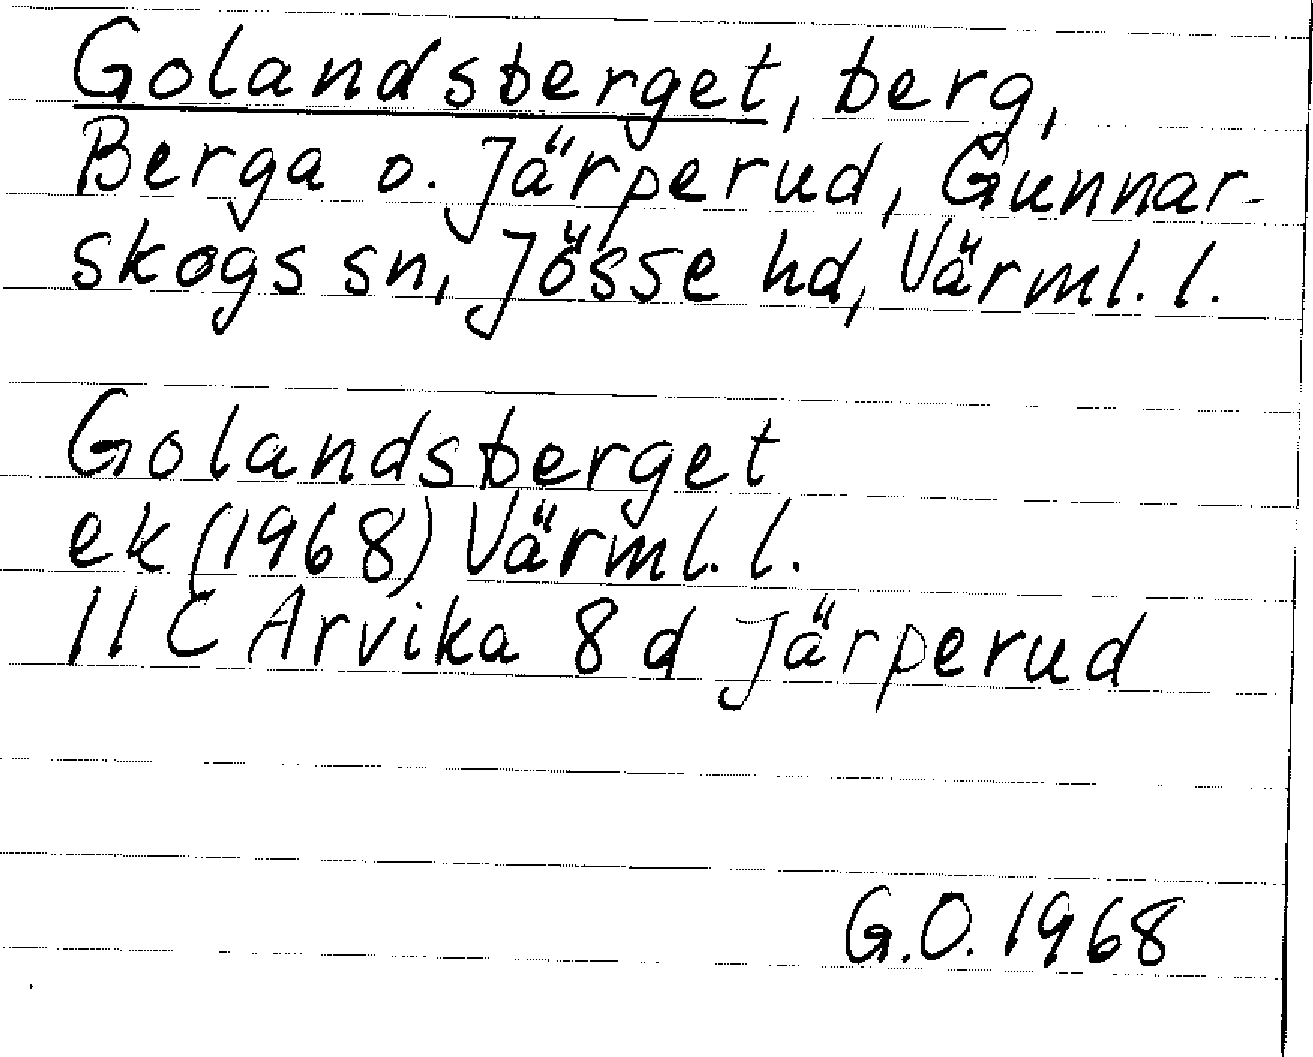 Golandsberget, berg,
Berga o. Järperud, Gunnar-
skogs sn, Jösse hd, Värml. l.
Golandsberget
ek (1968) Värml. l.
11 C Arvika 8 d Järperud
G.O. 1968